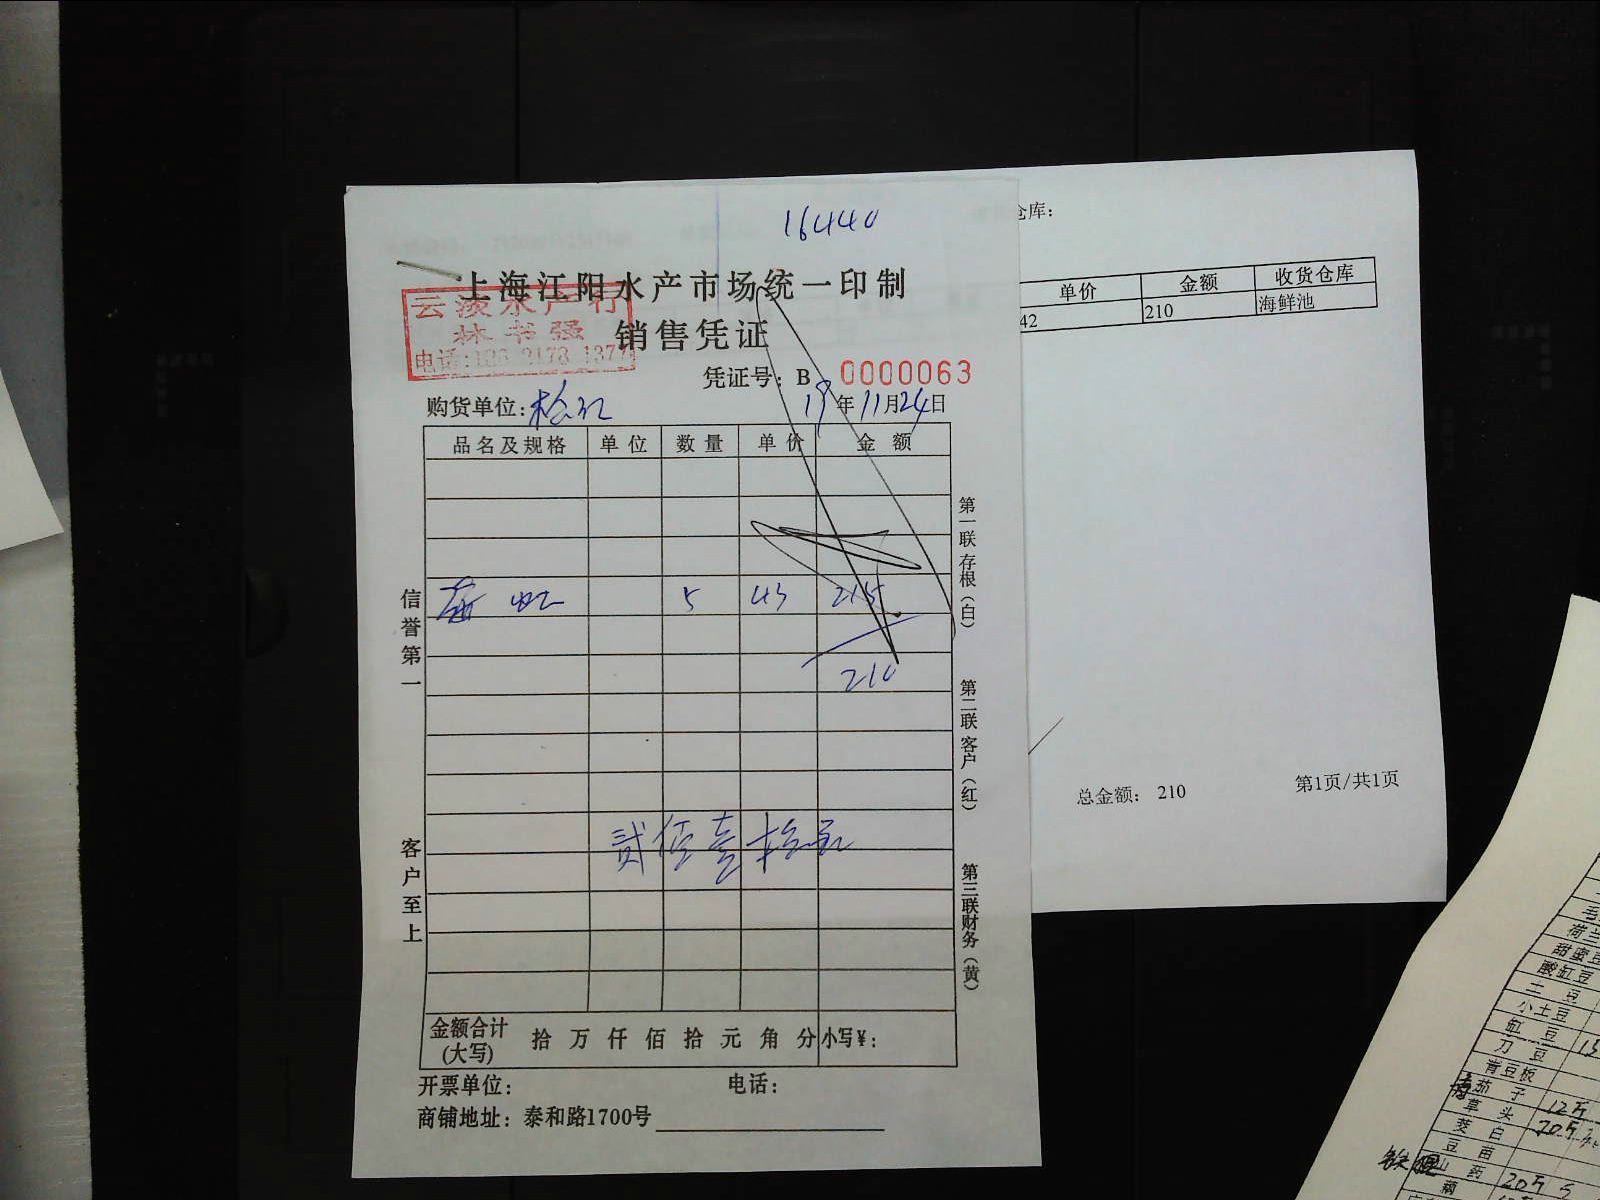 16440
上海江阳水产市场统一印制
云淡水产行
林书强
销售凭证
凭证号：B 0000063
购货单位：
19年11月24日
品名及规格 单位 数量 单价 金额
5 43 215
210
贰佰壹拾元
金额合计(大写) 拾 万 仟 佰 拾 元 角 分 小写￥：
开票单位： 电话：
商铺地址：泰和路1700号
信誉第一
客户至上
第一联存根（白）
第二联客户（红）
第三联财务（黄）
仓库：
单价 金额 收货仓库
42 210 海鲜池
总金额： 210 第1页/共1页
甜蜜豆
酸缸豆
土豆
小土豆
缸豆
刀豆
青豆板
茄子
草头 12斤
茭白 20斤
豆苗
山药 20斤
藕